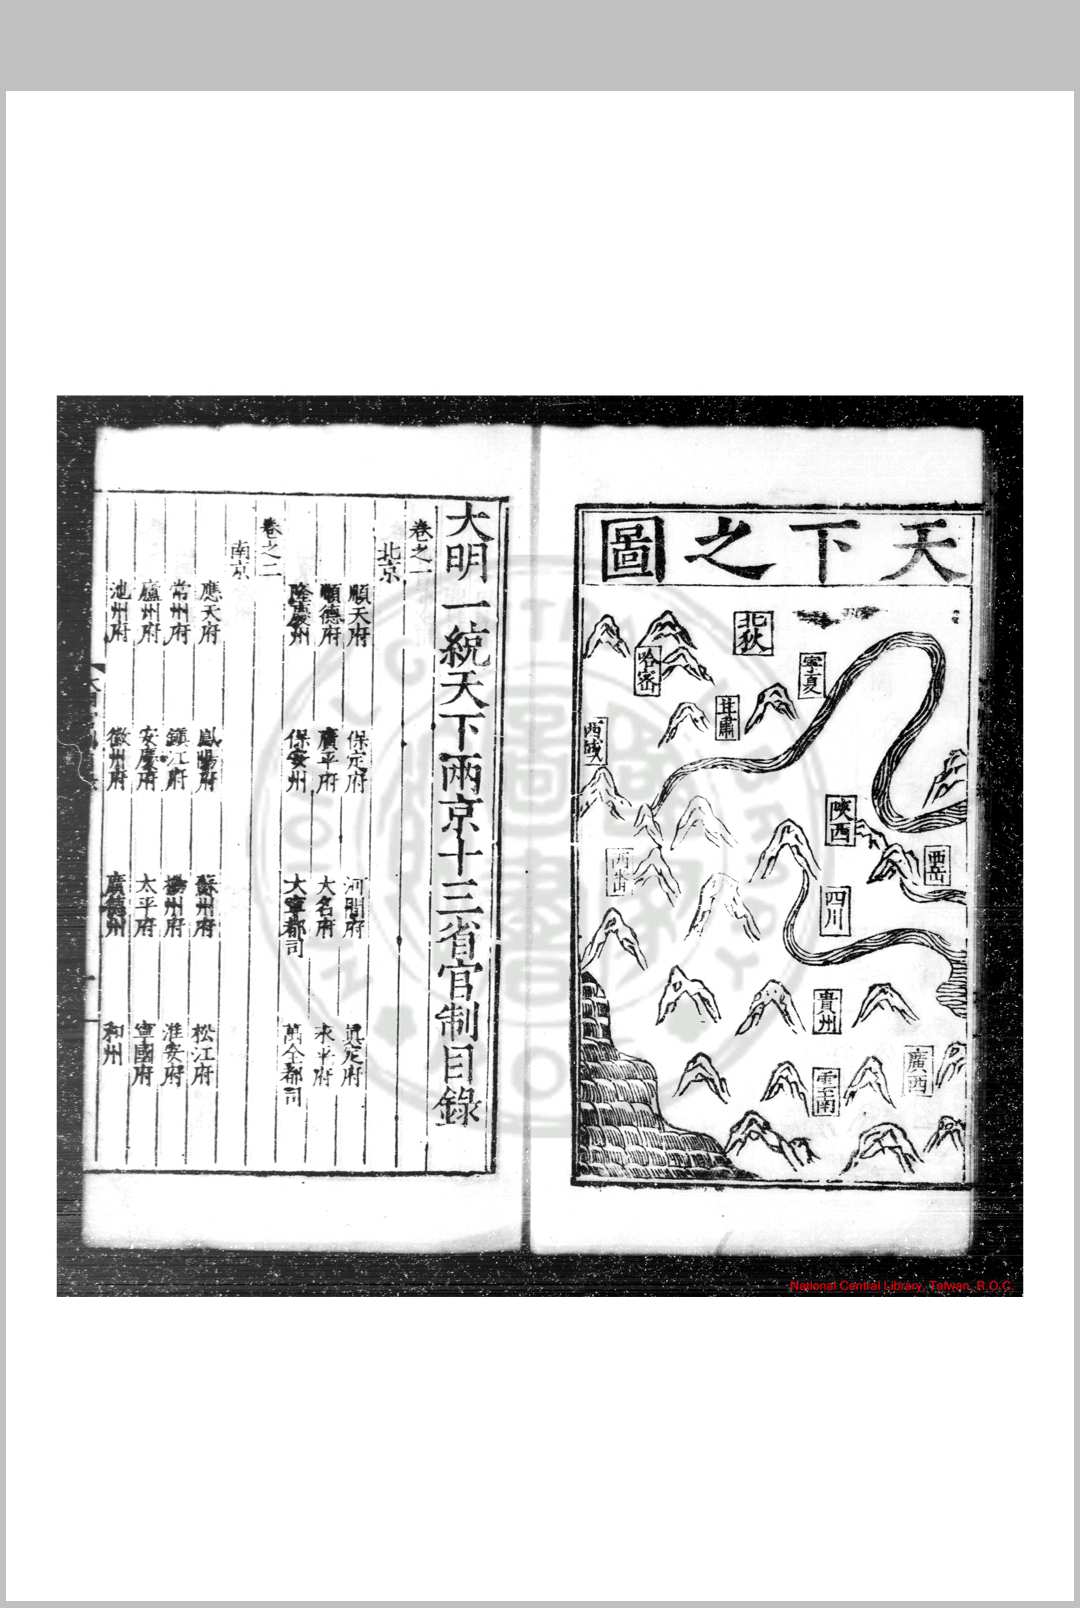 天下之圖
北狄
寧夏
哈密
甘肅
西域
陝西
西岳
四川
貴州
廣西
雲南
大明一統天下兩京十三省官制目錄
卷之一
北京
順天府 保定府 河間府 眞定府
順德府 廣平府 大名府 永平府
隆慶州 保安州 大寧都司 萬全都司
卷之二
南京
應天府 鳳陽府 蘇州府 松江府
常州府 鎮江府 揚州府 淮安府
廬州府 安慶府 太平府 寧國府
池州府 徽州府 廣德州 和州
National Central Library, Taiwan, R.O.C.